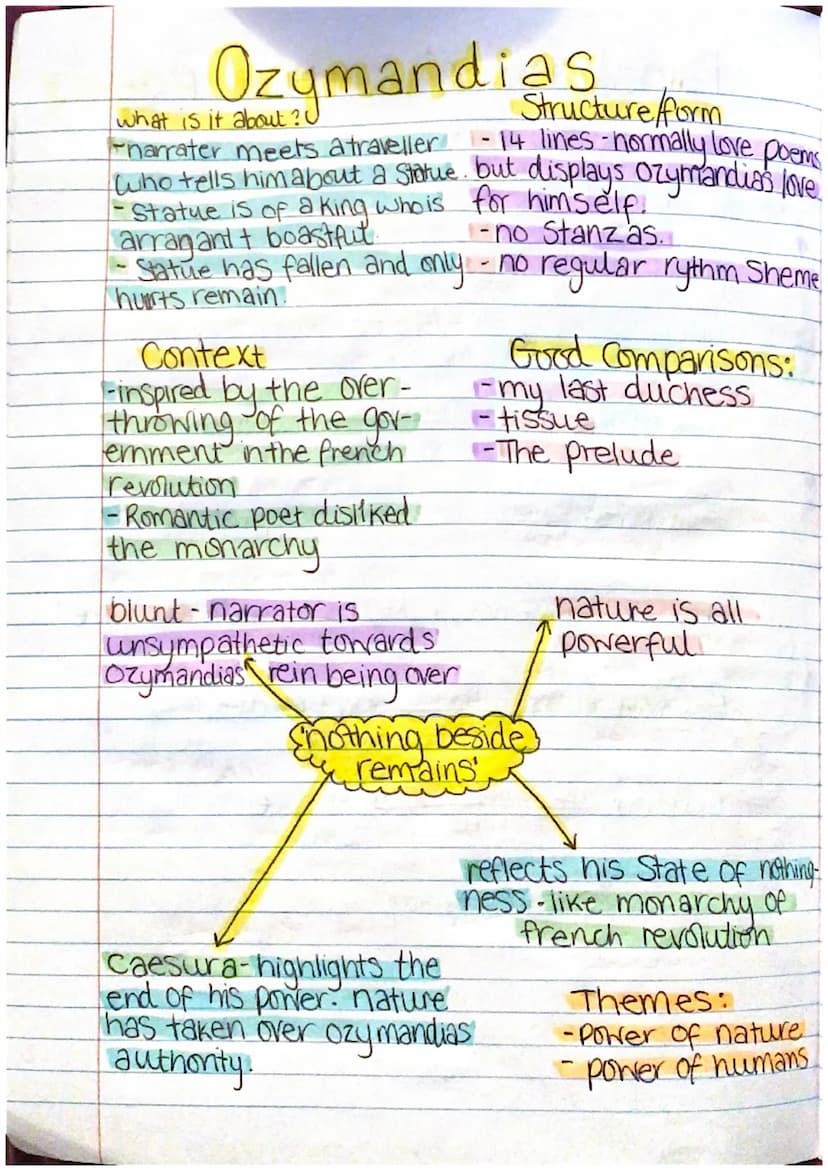 Ozymandias
what is it about?
-narrater meets a traveller
who tells him about a Statue.
- Statue is of a king who is
arragant + boastful.
- Statue has fallen and only
remain.
Structure/form
- 14 lines - normally love poems
but displays Ozymandias love
for himself.
- no Stanzas.
- no regular rythm Sheme
Context
-inspired by the over-
throwing of the gov-
ernment in the french
revolution
- Romantic poet disliked
the monarchy
Good Comparisons:
- my last duchess
- tissue
- The prelude
blunt - narrator is
unsympathetic towards
Ozymandias' rein being over
nature is all
powerful
'nothing beside
remains'
reflects his State of nothing-
ness - like monarchy of
french revolution
Caesura - highlights the
end of his power. nature
has taken over ozymandias
authority.
Themes:
- power of nature
- power of humans